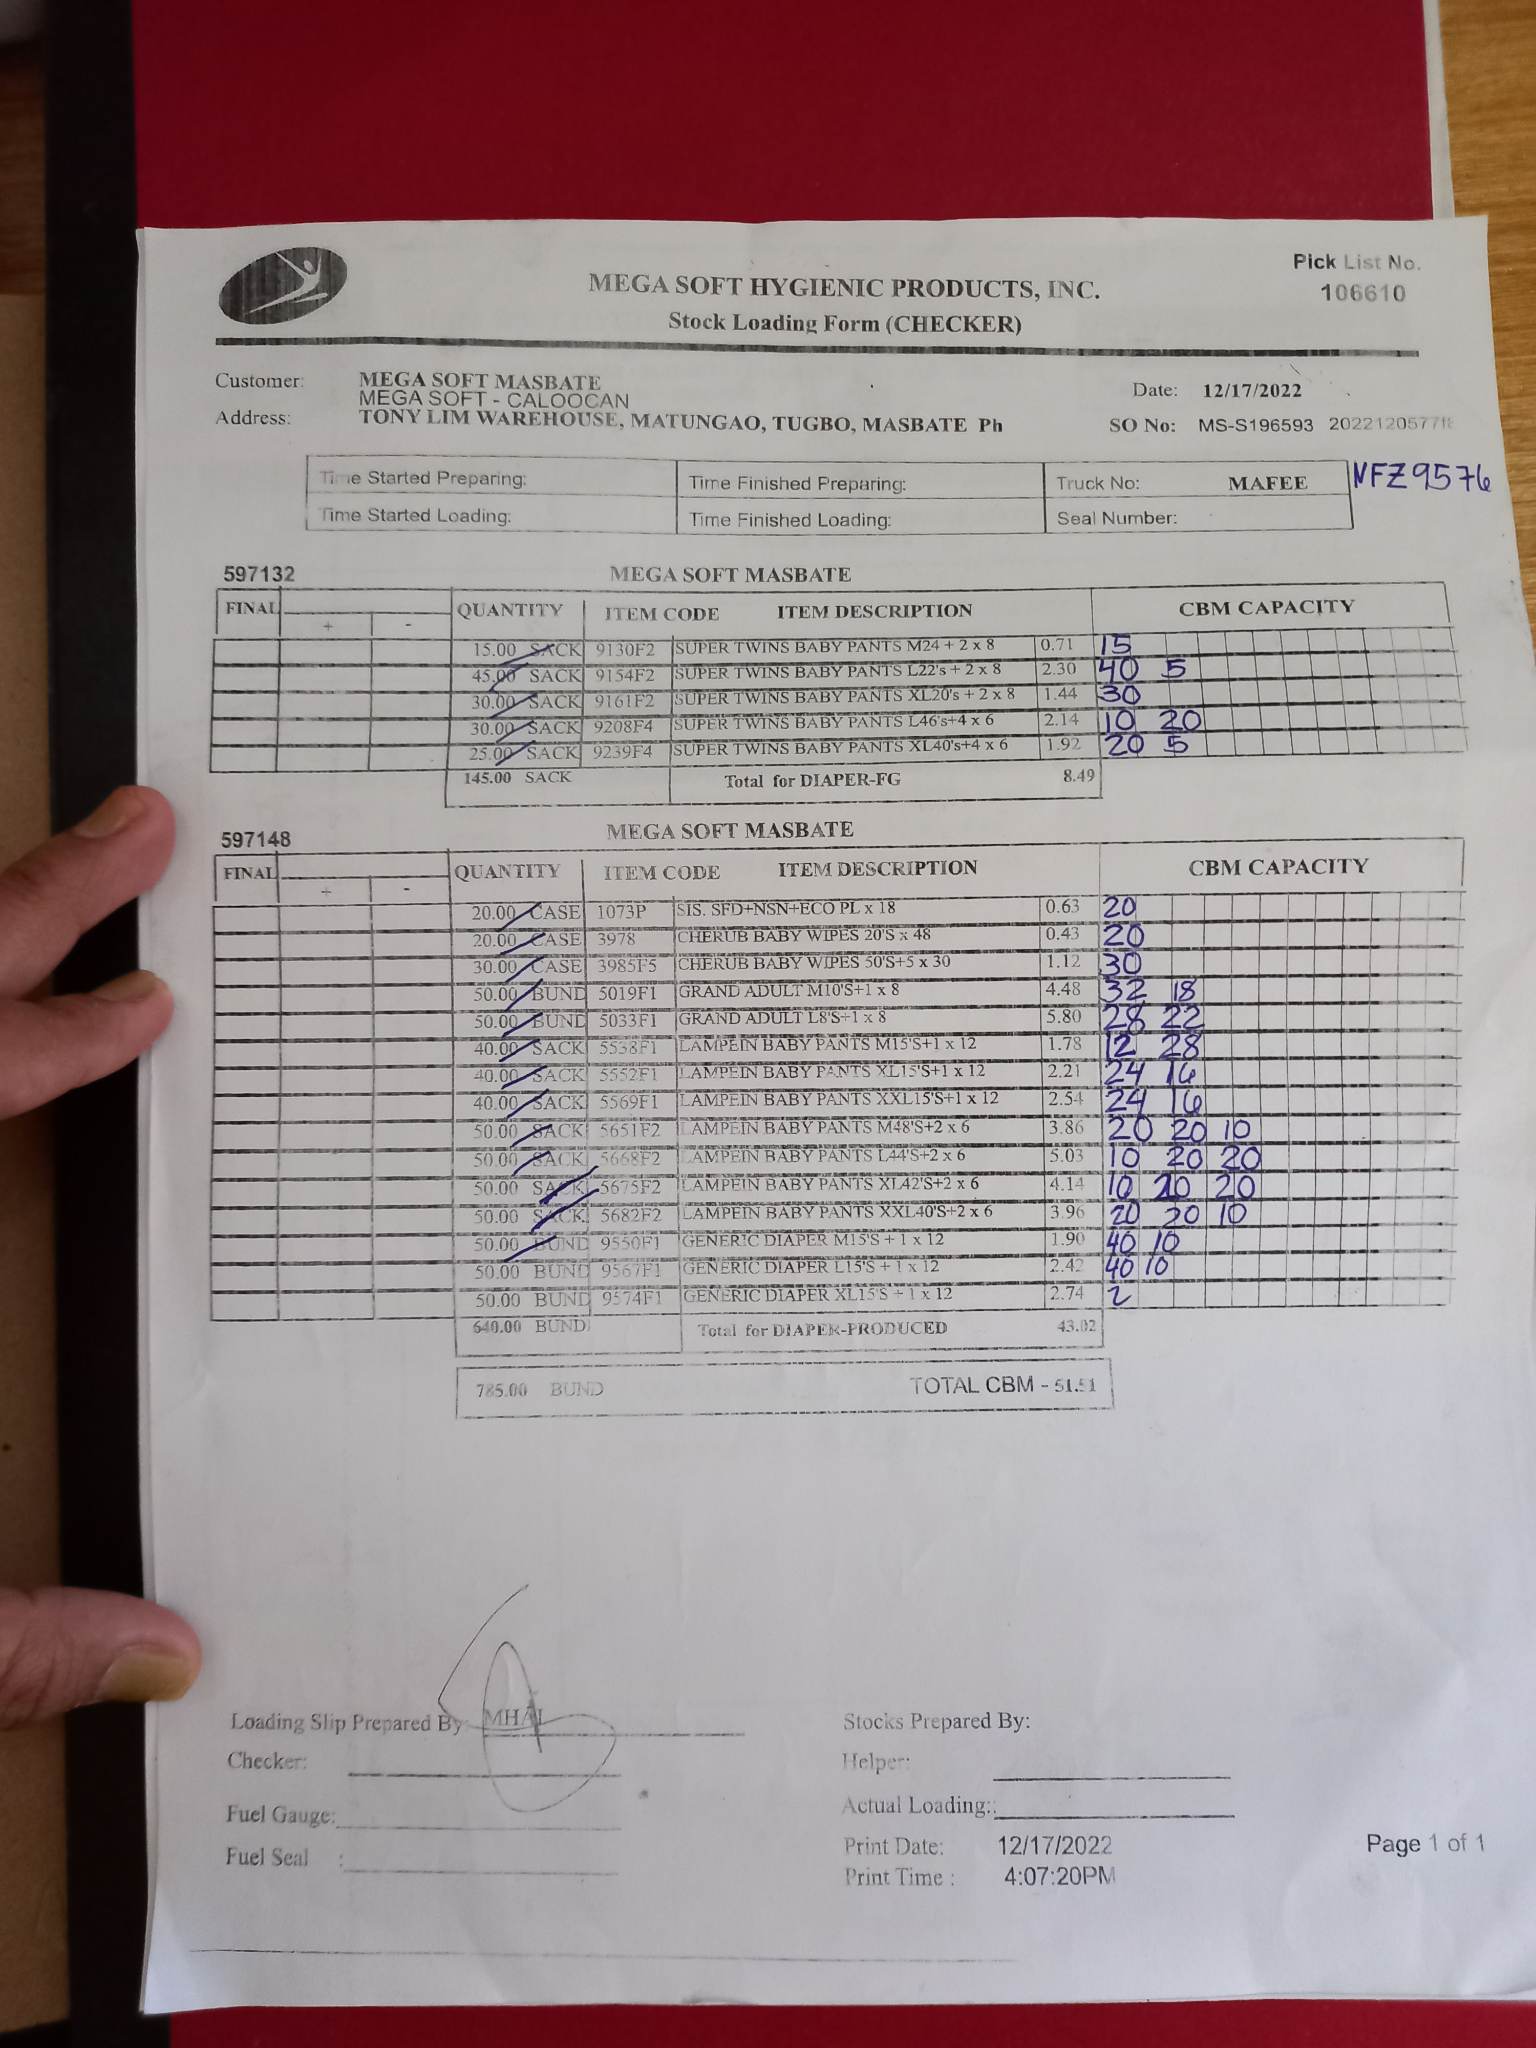 Pick List No.
MEGA SOFT HYGIENIC PRODUCTS, INC. 106610
Stock Loading Form (CHECKER)
Customer: MEGA SOFT MASBATE Date: 12/17/2022
MEGA SOFT - CALOOCAN
Address: TONY LIM WAREHOUSE, MATUNGAO, TUGBO, MASBATE Ph SO No: MS-S196593
Time Started Preparing: Time Finished Preparing: Truck No: MAFEE NFZ9576
Time Started Loading: Time Finished Loading: Seal Number:
597132 MEGA SOFT MASBATE
FINAL + - QUANTITY ITEM CODE ITEM DESCRIPTION CBM CAPACITY
15.00 SACK 9130F2 SUPER TWINS BABY PANTS M24 + 2 x 8 0.71 15
45.00 SACK 9154F2 SUPER TWINS BABY PANTS L22's + 2 x 8 2.30 40 5
30.00 SACK 9161F2 SUPER TWINS BABY PANTS XL20's + 2 x 8 1.44 30
30.00 SACK 9208F4 SUPER TWINS BABY PANTS L46's+4 x 6 2.14 10 20
25.00 SACK 9239F4 SUPER TWINS BABY PANTS XL40's+4 x 6 1.92 20 5
145.00 SACK Total for DIAPER-FG 8.49
597148 MEGA SOFT MASBATE
FINAL + - QUANTITY ITEM CODE ITEM DESCRIPTION CBM CAPACITY
20.00 CASE 1073P SIS. SFD+NSN+ECO PL x 18 0.63 20
20.00 CASE 3978 CHERUB BABY WIPES 20'S x 48 0.43 20
30.00 CASE 3985F5 CHERUB BABY WIPES 50'S+5 x 30 1.12 30
50.00 BUND 5019F1 GRAND ADULT M10'S+1 x 8 4.48 32 18
50.00 BUND 5033F1 GRAND ADULT L8'S+1 x 8 5.80 28 22
40.00 SACK 5538F1 LAMPEIN BABY PANTS M15'S+1 x 12 1.78 12 28
40.00 SACK 5552F1 LAMPEIN BABY PANTS XL15'S+1 x 12 2.21 24 16
40.00 SACK 5569F1 LAMPEIN BABY PANTS XXL15'S+1 x 12 2.54 24 16
50.00 SACK 5651F2 LAMPEIN BABY PANTS M48'S+2 x 6 3.86 20 20 10
50.00 SACK 5668F2 LAMPEIN BABY PANTS L44'S+2 x 6 5.03 10 20 20
50.00 SACK 5675F2 LAMPEIN BABY PANTS XL42'S+2 x 6 4.14 10 20 20
50.00 SACK 5682F2 LAMPEIN BABY PANTS XXL40'S+2 x 6 3.96 20 20 10
50.00 BUND 9550F1 GENERIC DIAPER M15'S + 1 x 12 1.90 40 10
50.00 BUND 9567F1 GENERIC DIAPER L15'S + 1 x 12 2.42 40 10
50.00 BUND 9574F1 GENERIC DIAPER XL15'S + 1 x 12 2.74 2
640.00 BUND Total for DIAPER-PRODUCED 43.02
785.00 BUND TOTAL CBM - 51.51
Loading Slip Prepared By MHAI Stocks Prepared By:
Checker: Helper:
Fuel Gauge: Actual Loading::
Fuel Seal : Print Date: 12/17/2022 Page 1 of 1
Print Time : 4:07:20PM